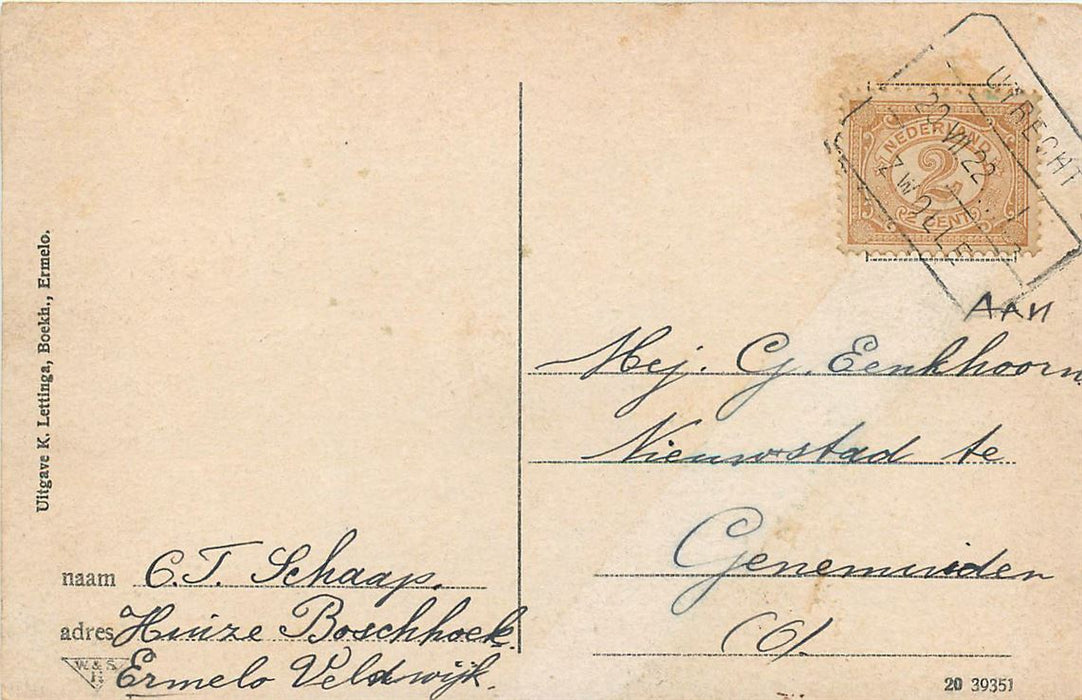 Uitgave K. Lettinga, Boekh., Ermelo.
naam C.T. Schaap.
adres Huize Boschhoek.
Ermelo Veldwijk.
W. & S.
UTRECHT
20 VII 22
ZWOLLE
NEDERLAND
2
2 CENT
AAN
Mej. G. Eenkhoorn
Nieuwstad te
Genemuiden
(O).
20 39351